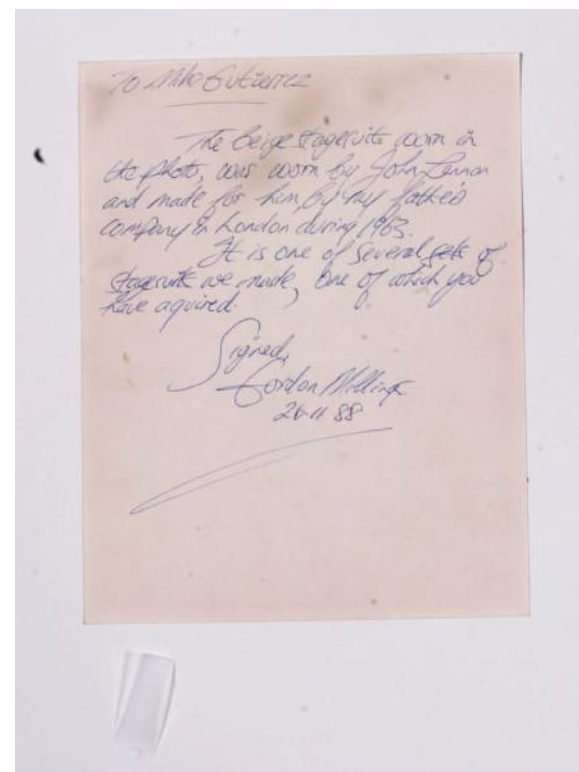 To Mike Gutierrez
The beige stagesuits worn in
the photo, was worn by John Lennon
and made for him by my father's
company in London during 1963.
It is one of several sets of
stagesuits we made, one of which you
have aquired.
Signed,
Gordon Millings
26-11 88